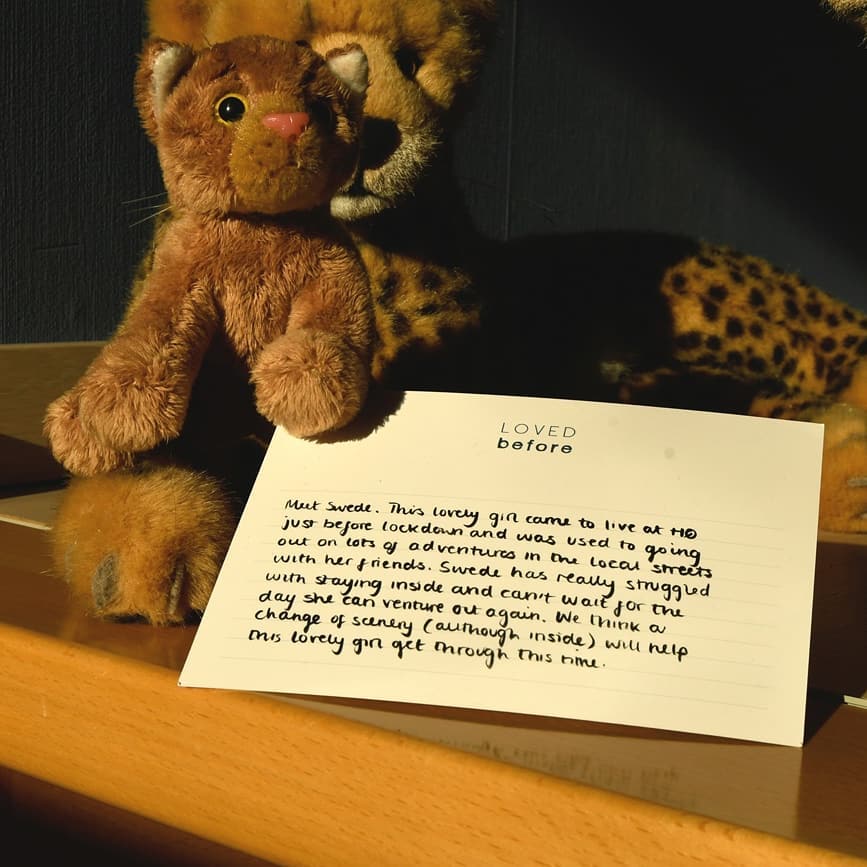 LOVED
before
Meet Swede. This lovely girl came to live at HQ
just before lockdown and was used to going
out on lots of adventures in the local streets
with her friends. Swede has really struggled
with staying inside and can't wait for the
day she can venture out again. We think a
change of scenery (although inside) will help
this lovely girl get through this time.